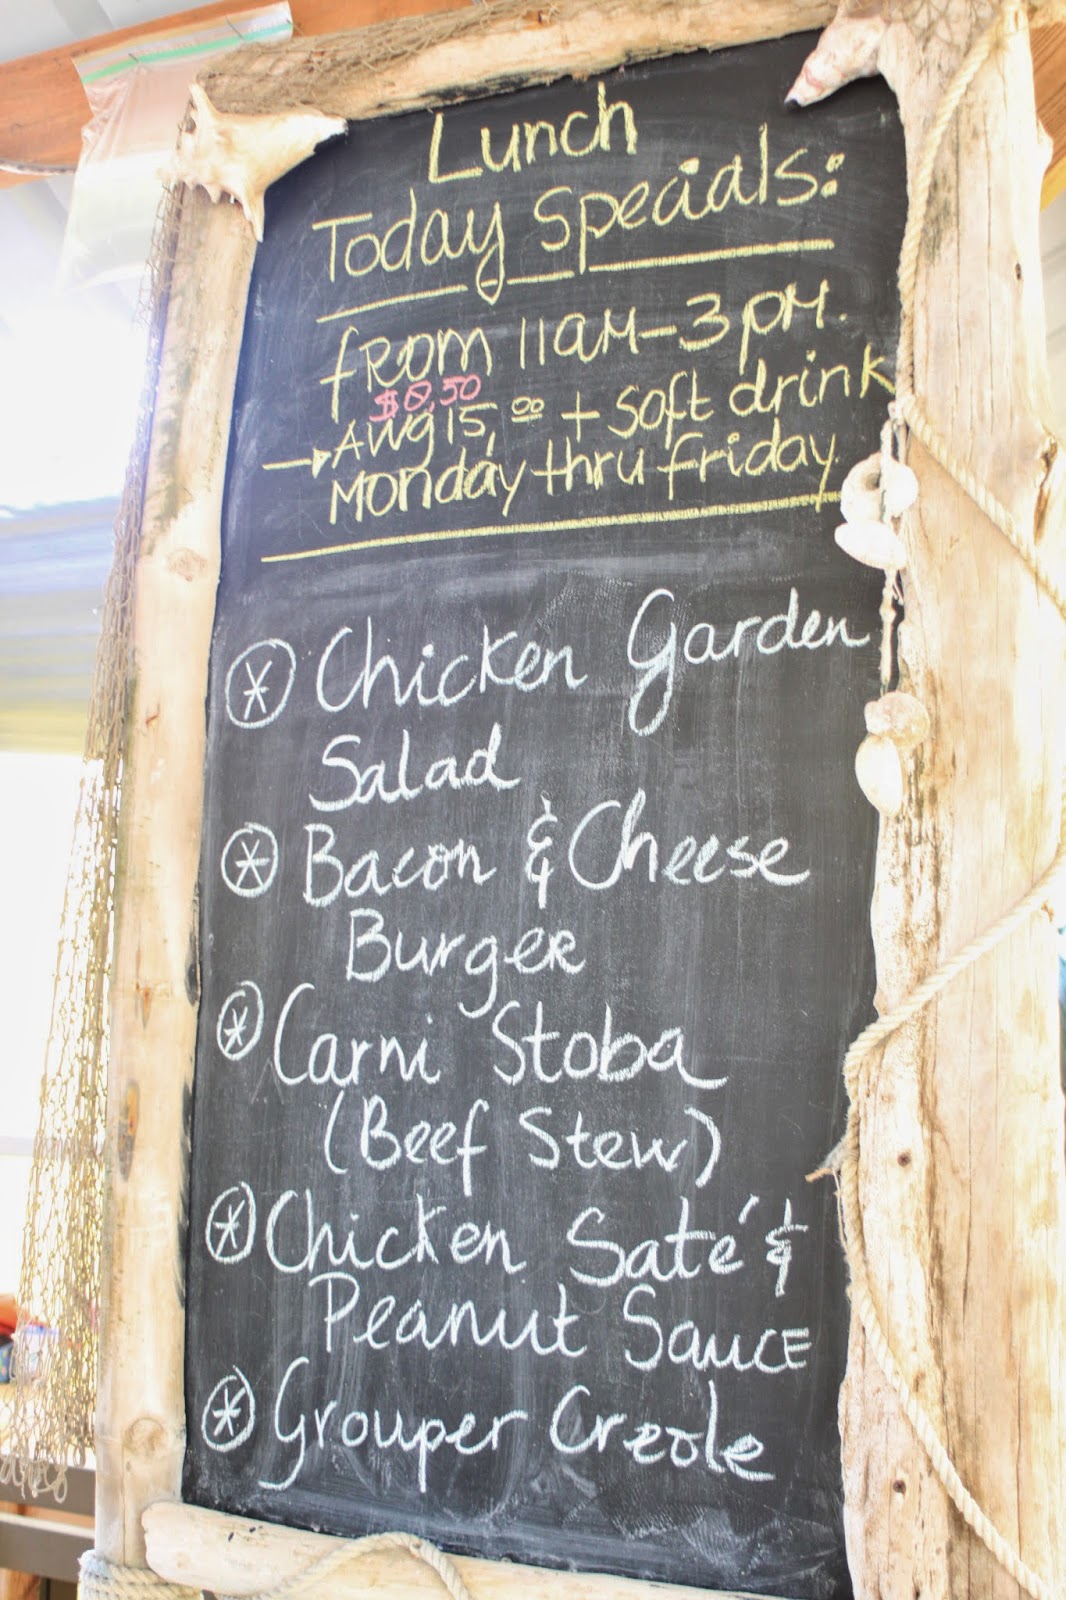 Lunch
Today Specials:
from 11am-3pm.
$8,50
→ AWG 15,00 + soft drink
Monday thru friday.
Chicken Garden
Salad
Bacon & Cheese
Burger
Carni Stoba
(Beef Stew)
Chicken Saté &
Peanut Sauce
Grouper Creole